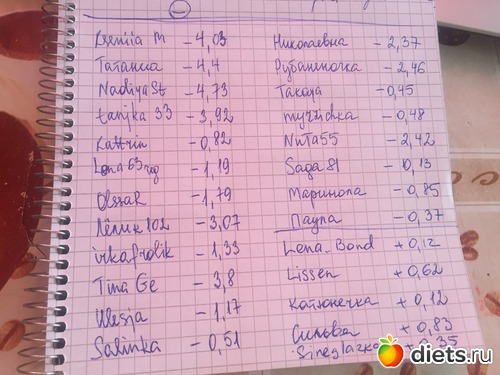 Kseniia M – 4,03
Татаниа – 4,4
NadiyaSt – 4,73
tanjka 33 – 3,92
Kattrin – 0,82
Lena 63 – 1,19
– 1,79
Лёлик 102 – 3,07
irkafrolik – 1,33
Tina Ge – 3,8
Wesja – 1,17
Salinka – 0,51
Николаевна – 2,37
Рубаненочка – 2,46
Такая – 0,45
– 0,48
NuTa55 – 2,42
Saga 81 – 0,13
Маринопа – 0,85
Паула – 0,37
Lena_Bond + 0,12
Lissen + 0,62
Катюнечка + 0,12
Сильва + 0,83
Sineglazka 35
diets.ru